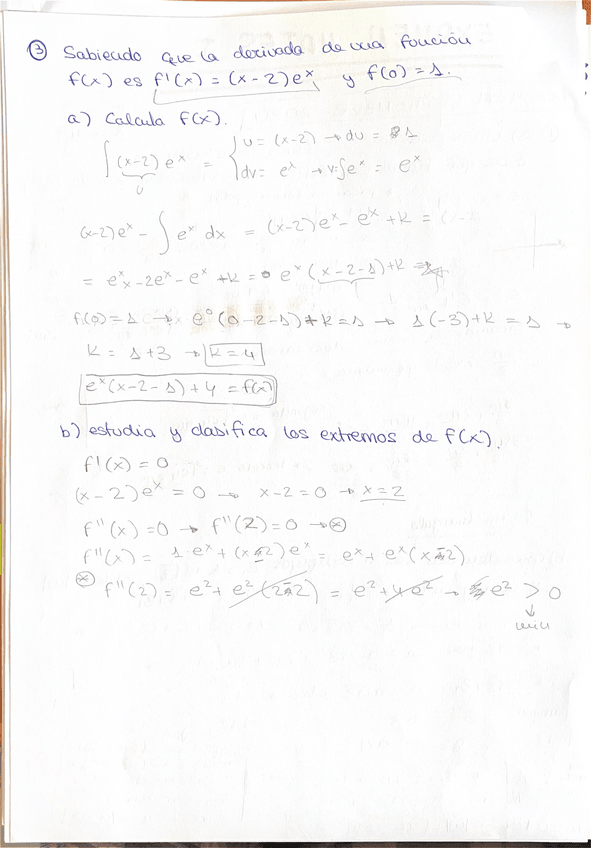 ③ Sabiendo que la derivada de una función
f(x) es f'(x) = (x-2)e^x y f(0) = 1.
a) Calcula f(x).
∫ (x-2) e^x = { u = (x-2) → du = 1
u
dv = e^x → v = ∫e^x = e^x
(x-2)e^x - ∫ e^x dx = (x-2)e^x - e^x + k =
= e^x x - 2e^x - e^x + k = e^x (x-2-1) + k =
f(0) = 1 → e^0 (0-2-1) + k = 1 → 1(-3) + k = 1 →
k = 1+3 → k = 4
e^x (x-2-1) + 4 = f(x)
b) estudia y clasifica los extremos de f(x).
f'(x) = 0
(x-2)e^x = 0 → x-2 = 0 → x = 2
f''(x) = 0 → f''(2) = 0 → ⊛
f''(x) = 1·e^x + (x-2)e^x = e^x + e^x (x-2)
⊛ f''(2) = e^2 + e^2 (2-2) = e^2 + 4e^2 → e^2 > 0
↓
min